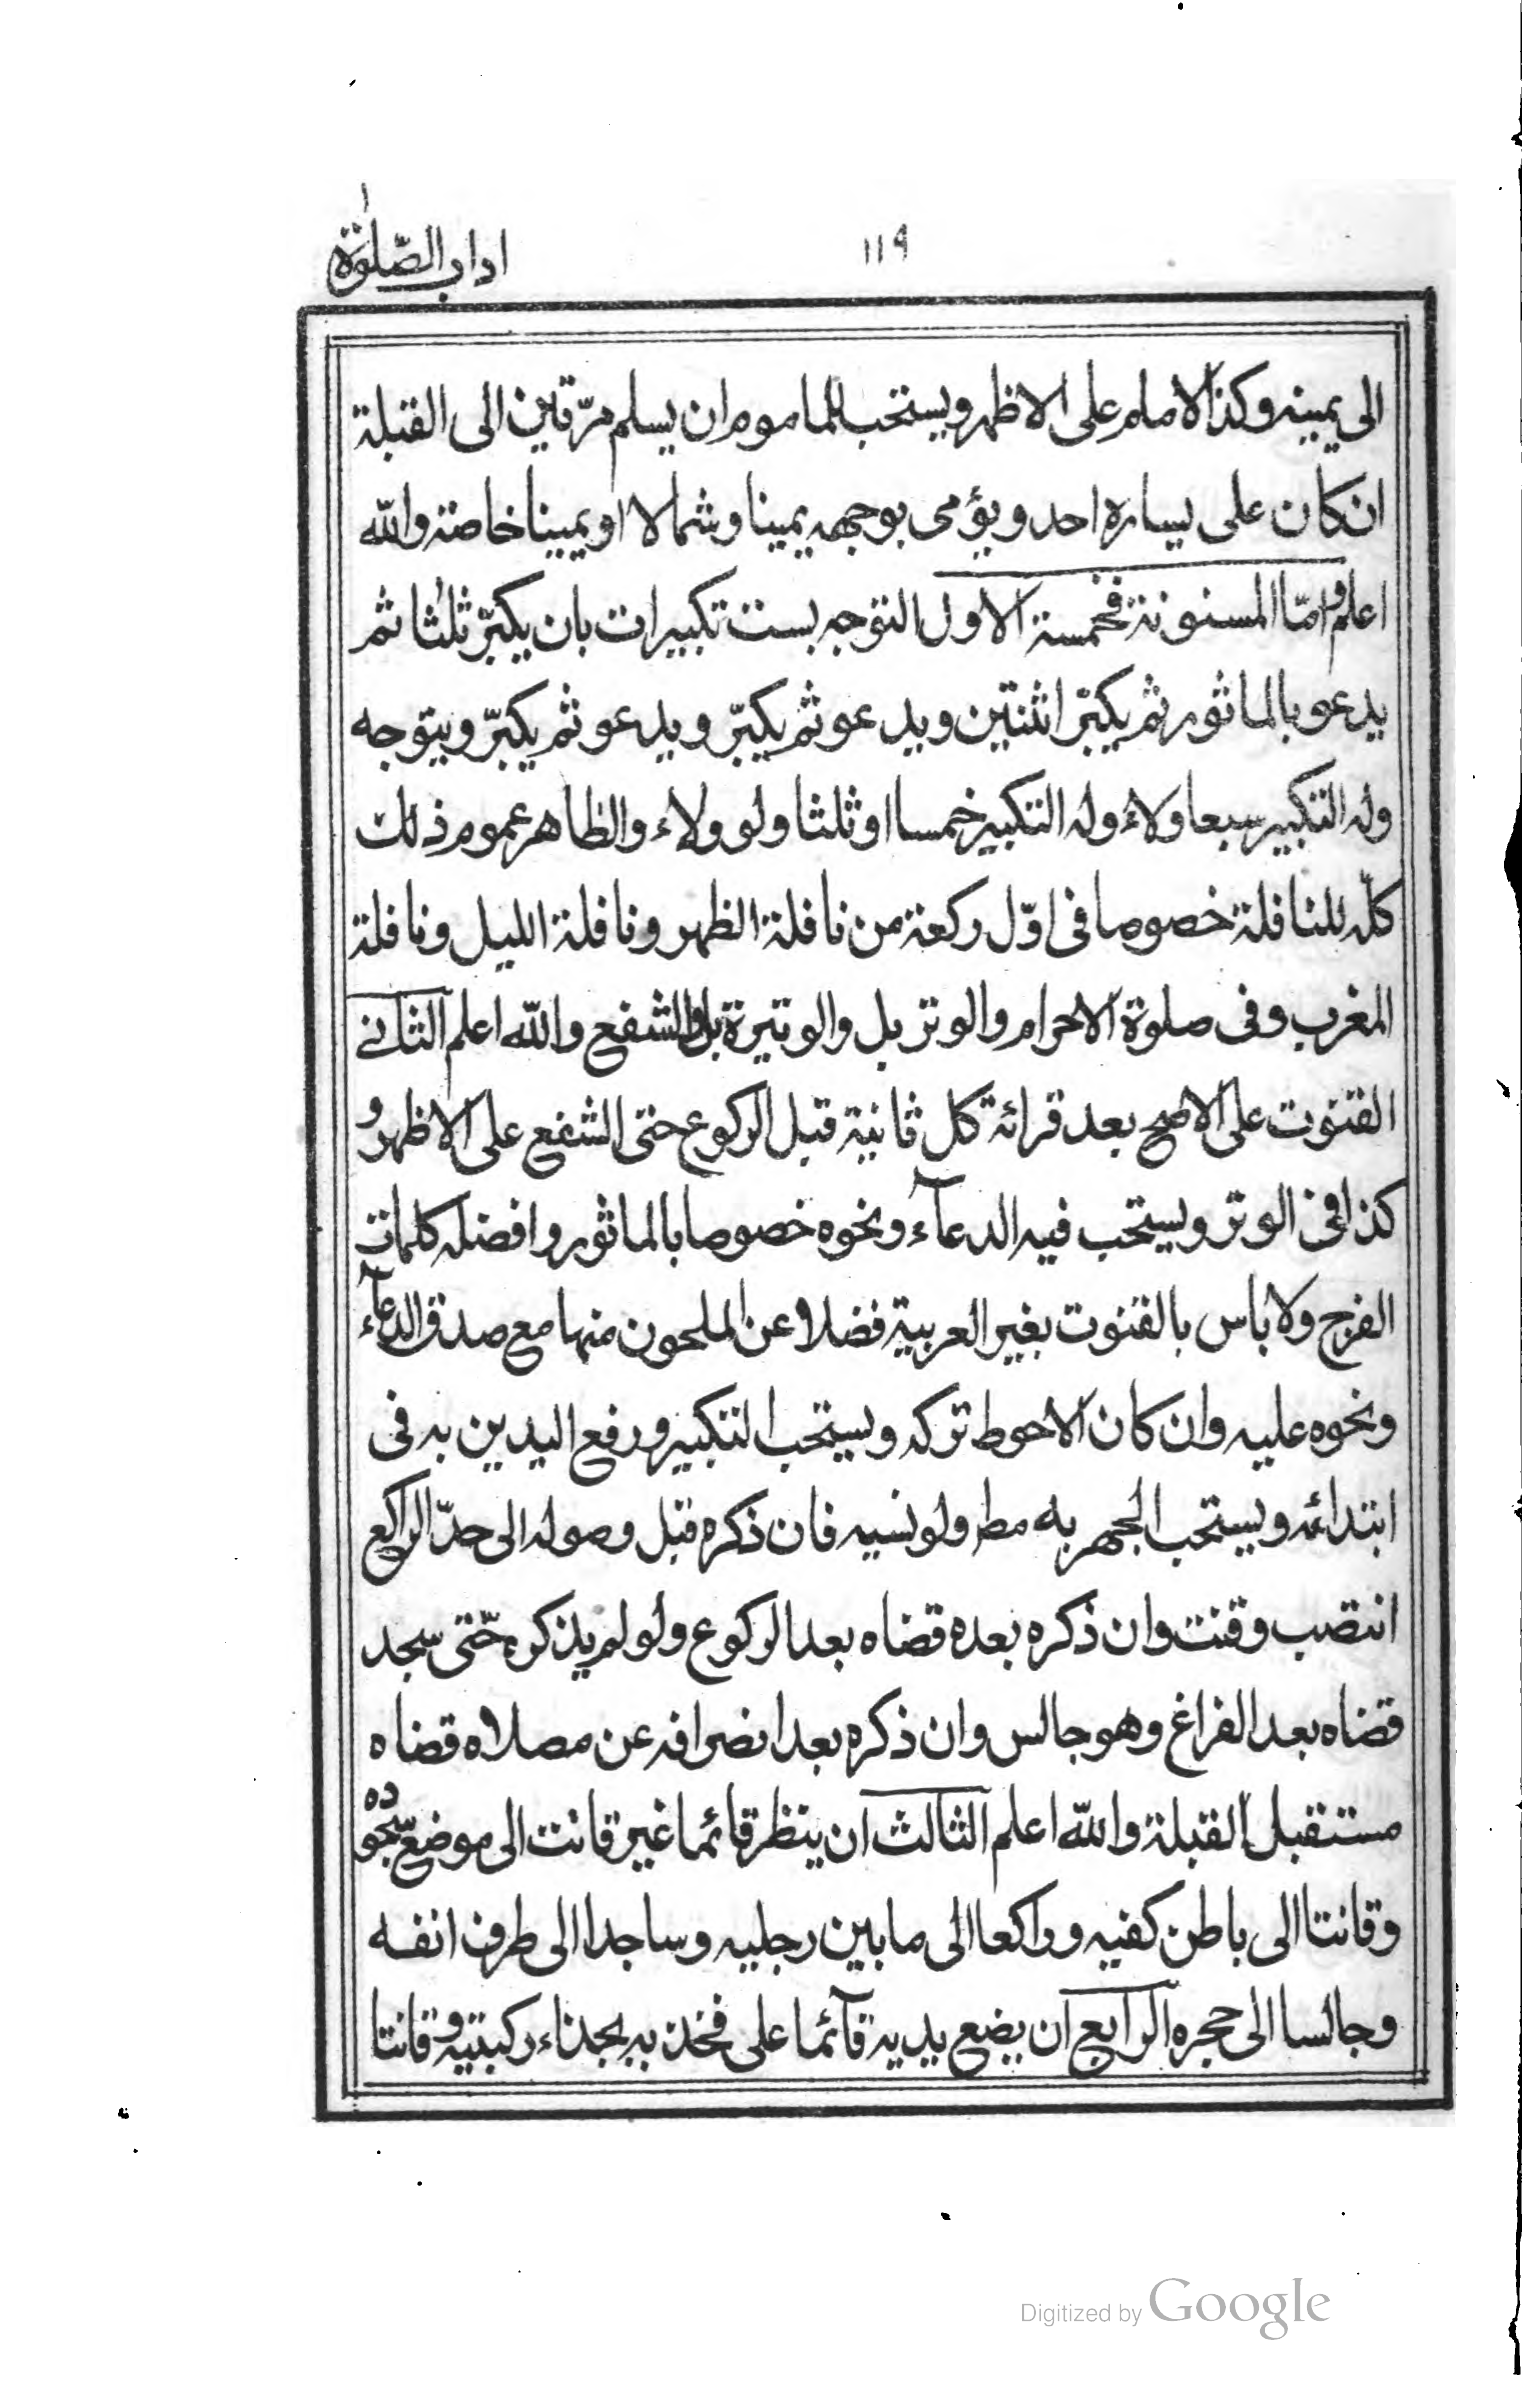 ١١٩
اداب الصّلوٰة
الى يمينه وكذا الامام على الاظهر ويستحب للماموم ان يسلم مرّتين الى القبلة
ان كان على يساره احد ويؤمى بوجهه يمينا وشمالا او يمينا خاصة والله
اعلم وامّا المسنونة فخمسة الاول التوجه بست تكبيرات بان يكبّر ثلثا ثم
يدعو بالماثور ثم يكبّر اثنتين ويدعو ثم يكبّر ويدعو ثم يكبّر ويتوجه
وله التكبير سبعا ولاء وله التكبير خمسا او ثلثا ولو ولاء والظاهر عموم ذلك
كلّه للنافلة خصوصا فى اوّل ركعة من نافلة الظهر ونافلة الليل ونافلة
المغرب وفى صلوة الاحرام والوتر بل والوتيرة بل والشفع والله اعلم الثانے
القنوت على الاصح بعد قرائة كل ثانية قبل الركوع حتى الشفع على الاظهر و
كذا فى الوتر ويستحب فيه الدعآء ونحوه خصوصا بالماثور وافضله كلمات
الفرج ولا باس بالقنوت بغير العربية فضلا عن الملحون منها مع صدق الدعآء
ونحوه عليه وان كان الاحوط تركه ويستحب التكبير ورفع اليدين به فى
ابتدائه ويستحب الجهر به مط ولو نسيه فان ذكره قبل وصوله الى حدّ الراكع
انتصب وقنت وان ذكره بعده قضاه بعد الركوع ولو لم يذكره حتّى سجد
قضاه بعد الفراغ وهو جالس وان ذكره بعد انصرافه عن مصلاه قضاه
مستقبل القبلة والله اعلم الثالث ان ينظر قائما غير قانت الى موضع سجوده
وقانتا الى باطن كفيه وراكعا الى مابين رجليه وساجدا الى طرف انفه
وجالسا الى حجره الرابع ان يضع يديه قآئما على فخذيه بحذاء ركبتيه وقانتا
Digitized by Google